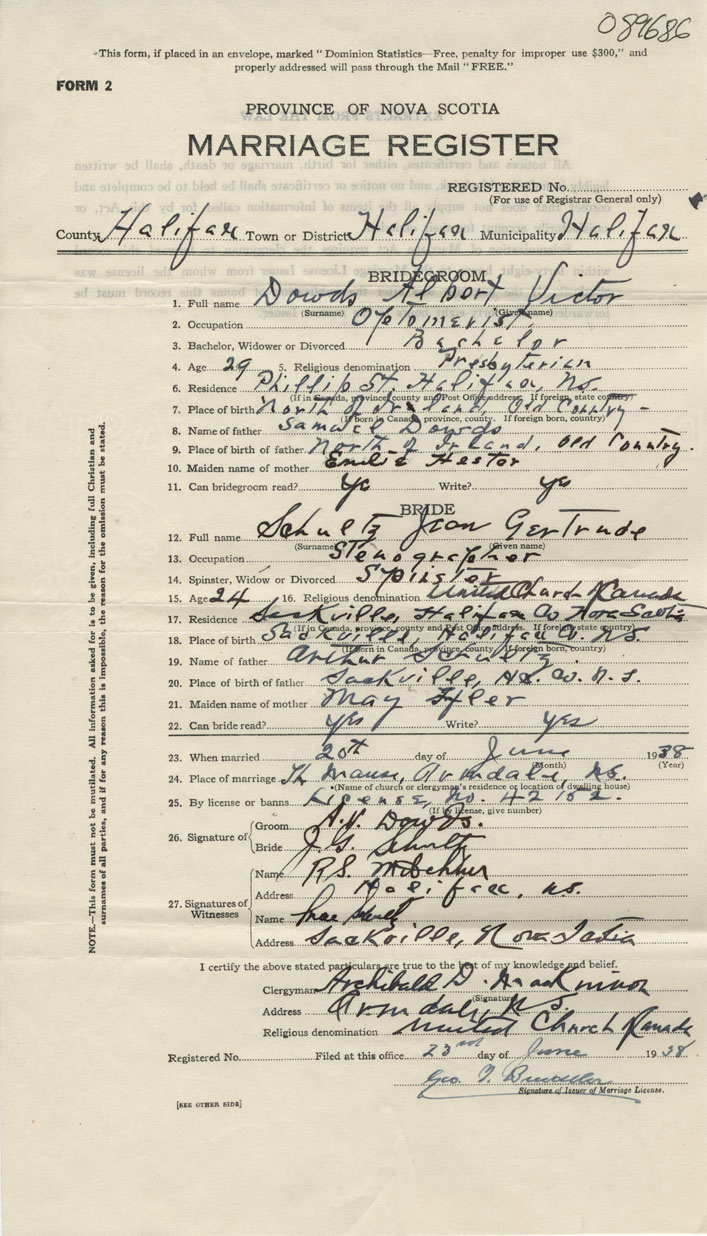 089686
"This form, if placed in an envelope, marked "Dominion Statistics—Free, penalty for improper use $300," and
properly addressed will pass through the Mail "FREE."
FORM 2
PROVINCE OF NOVA SCOTIA
MARRIAGE REGISTER
REGISTERED No.
(For use of Registrar General only)
County Halifax Town or District Halifax Municipality Halifax
BRIDEGROOM
1. Full name Dowds Albert Victor
(Surname) (Given name)
2. Occupation Optometrist.
3. Bachelor, Widower or Divorced Bachelor
4. Age 29 5. Religious denomination Presbyterian
6. Residence Phillip St. Halifax, N.S.
(If in Canada, province, county and Post Office address. If foreign, state country)
7. Place of birth North of Ireland, Old Country -
(If born in Canada, province, county. If foreign born, country)
8. Name of father Samuel Dowds
9. Place of birth of father North of Ireland, Old Country.
10. Maiden name of mother Emilie Hester
11. Can bridegroom read? Yes Write? Yes
BRIDE
12. Full name Schultz Jean Gertrude
(Surname) (Given name)
13. Occupation Stenographer
14. Spinster, Widow or Divorced Spinster
15. Age 24 16. Religious denomination United Church of Canada
17. Residence Sackville, Halifax Co. Nova Scotia
(If in Canada, province, county and Post Office address. If foreign, state country)
18. Place of birth Sackville, Halifax Co. N.S.
(If born in Canada, province, county. If foreign born, country)
19. Name of father Arthur Schultz.
20. Place of birth of father Sackville, Hx. Co. N.S.
21. Maiden name of mother May
22. Can bride read? Yes Write? Yes
23. When married 20th day of June 1938
(Month) (Year)
24. Place of marriage Th Manse, Armdale, N.S.
(Name of church or clergyman's residence or location of dwelling house)
25. By license or banns License, No. 42152.
(If by license, give number)
26. Signature of
Groom A.V. Dowds.
Bride J.G. Schultz
27. Signatures of Witnesses
Name R.S.
Address Halifax, N.S.
Name
Address Sackville, Nova Scotia
I certify the above stated particulars are true to the best of my knowledge and belief.
Clergyman Archibald D. MacKinnon
(Signature)
Address Armdale, N.S.
Religious denomination United Church of Canada
Registered No. Filed at this office 23rd day of June 1938
Geo. T.
Signature of Issuer of Marriage License.
[SEE OTHER SIDE]
NOTE.—This form must not be mutilated. All information asked for is to be given, including full Christian and
surnames of all parties, and if for any reason this is impossible, the reason for the omission must be stated.